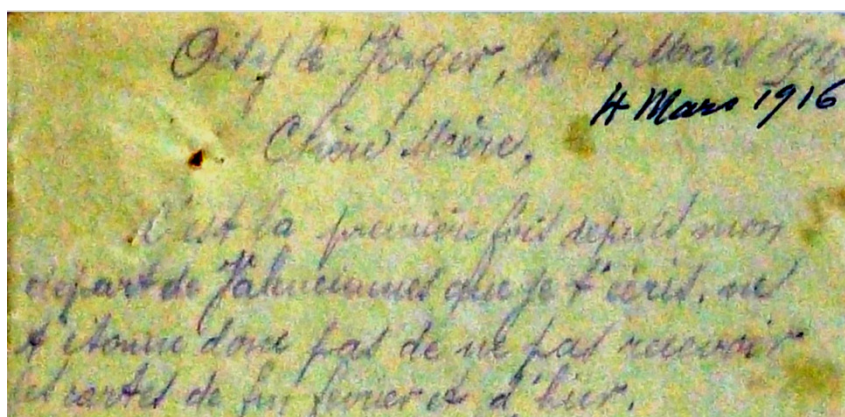 Oisy le Verger, le 4 Mars 1916
4 Mars 1916
Chère Mère,
C'est la première fois depuis mon
départ de Valenciennes que je t'écris, ne
t'étonne donc pas de ne pas recevoir
les cartes de fin février et d'hier.